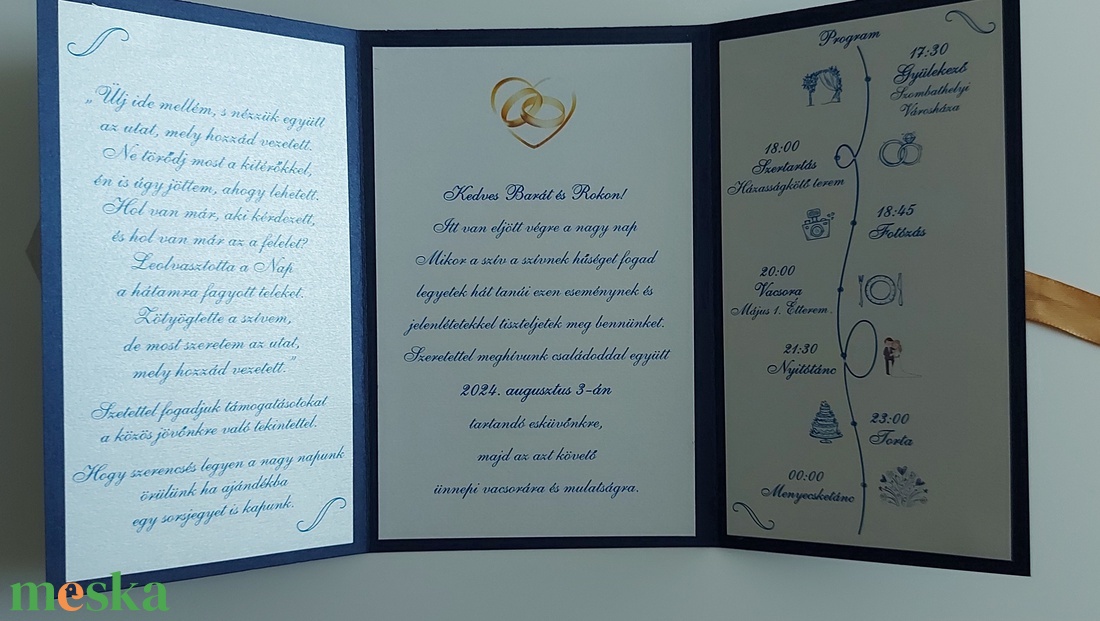 „Ülj ide mellém, s nézzük együtt
az utat, mely hozzád vezetett.
Ne törődj most a kitérőkkel,
én is úgy jöttem, ahogy lehetett.
Hol van már, aki kérdezett,
és hol van már az a felelet?
Leolvasztotta a Nap
a hátamra fagyott teleket.
Zötyögtette a szívem,
de most szeretem az utat,
mely hozzád vezetett.”
Szetettel fogadjuk támogatásotokat
a közös jövőnkre való tekintettel.
Hogy szerencsés legyen a nagy napunk
örülünk ha ajándékba
egy sorsjegyet is kapunk.
Kedves Barát és Rokon!
Itt van eljött végre a nagy nap
Mikor a szív a szívnek hűséget fogad
legyetek hát tanúi ezen eseménynek és
jelenlétetekkel tiszteljetek meg bennünket.
Szeretettel meghívunk családoddal együtt
2024. augusztus 3-án
tartandó esküvőnkre,
majd az azt követő
ünnepi vacsorára és mulatságra.
Program
17:30
Gyülekező
Szombathelyi
Városháza
18:00
Szertartás
Házasságkötő terem
18:45
Fotózás
20:00
Vacsora
Május 1. Étterem.
21:30
Nyitótánc
23:00
Torta
00:00
Menyecsketánc
meska